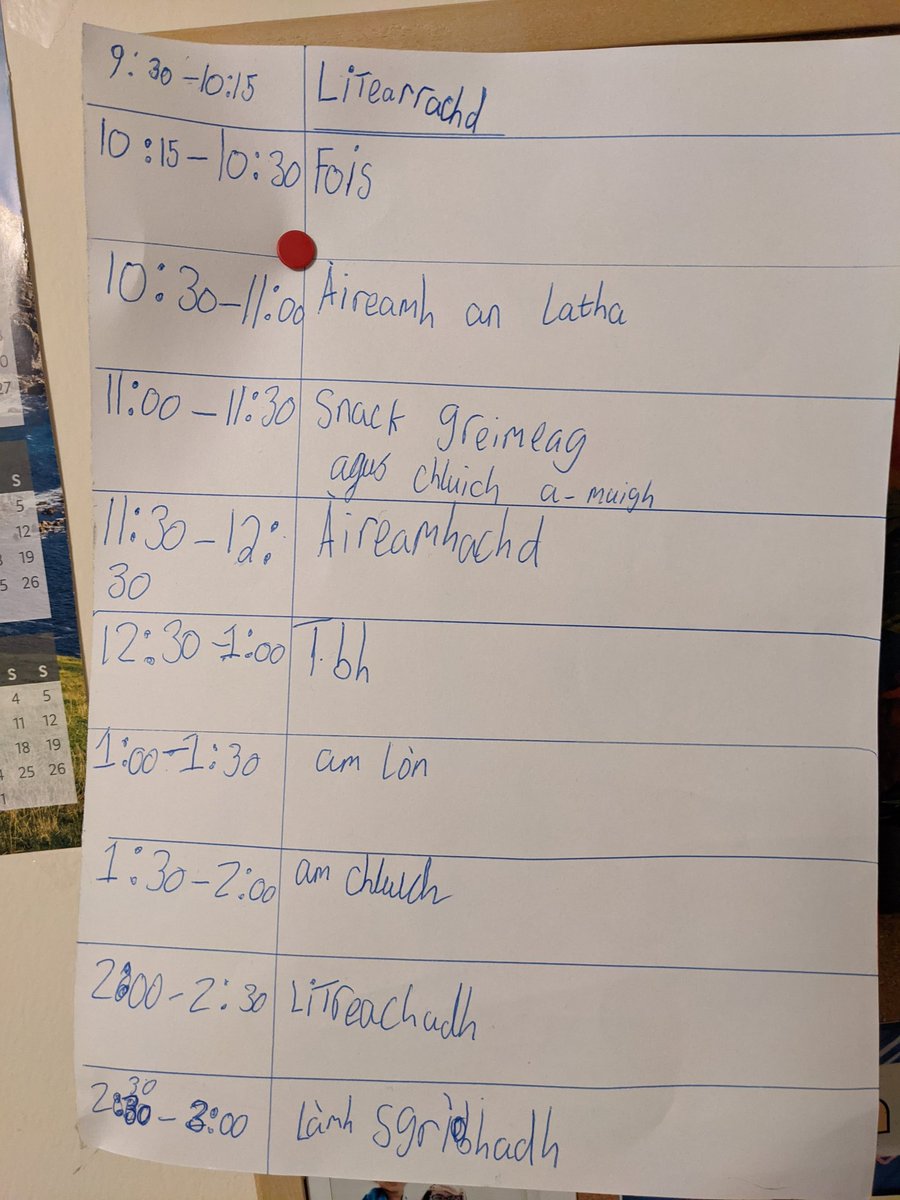 9:30-10:15 Litearrachd
10:15-10:30 Fois
10:30-11:00 Àireamh an Latha
11:00-11:30 Snack greimeag
agus chluich a-muigh
11:30-12: Àireamhachd
30
12:30-1:00 T.bh
1:00-1:30 am Lòn
1:30-2:00 am chluich
2:00-2:30 Litreachadh
2:30-3:00 Làmh sgrìobhadh
S
5
12
19
5 26
S S
4 5
11 12
18 19
25 26